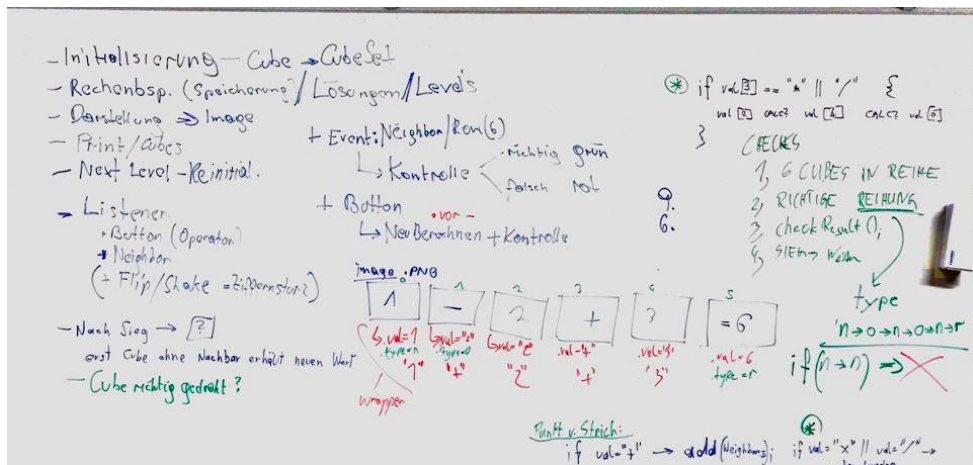 - Initialisierung - Cube → CubeSet
- Rechenbsp. (Speicherung) / Lösungen / Levels
- Darstellung ⇒ Image
- Print / Cubes
- Next Level - Reinitial.
- Listener
+ Button (Operator)
* Neighbor
(+ Flip/Shake = Ziffernsturz)
- Nach Sieg → [?]
erst Cube ohne Nachbar erhält neuen Wert
- Cube richtig gedreht?
+ Event: Neighbor/Row(6)
↳ Kontrolle
richtig grün
falsch rot
+ Button
• vor -
↳ Neu Berechnen + Kontrolle
image .PNG
0 1 2 3 4 5
1 - 2 + 3 = 6
↳ .val=1 ↳ val="+" ↳ val="2" .val="+" .val="3" .val=6
.type=n .type=o type=r
"1" "+" "2" "+" "3"
wrapper
* if val[3] == "*" || "/" {
val [2] CALC? val [4] CALC? val [0]
}
CHECKS
1, 6 CUBES IN REIHE
2, RICHTIGE REIHUNG
3, checkResult();
4, SIEG →
9.
6.
type
n→o→n→o→n→r
if (n→n) ⇒ X
Punkt v. Strich:
if val="+" → add(Neighbors);
* if val="x" || val="/" →